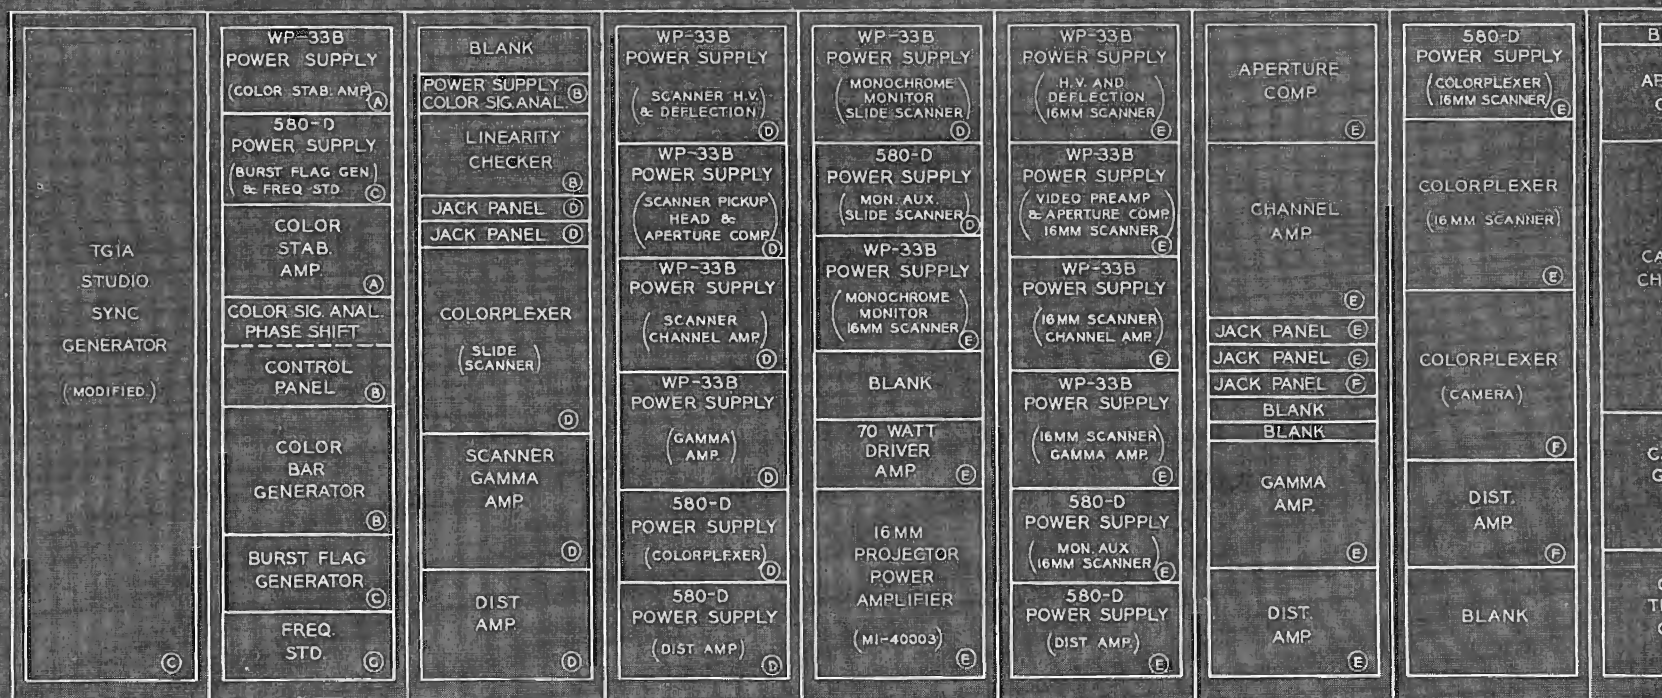 TG1A
STUDIO
SYNC
GENERATOR
(MODIFIED.)
C
WP-33B
POWER SUPPLY
(COLOR STAB. AMP)
A
580-D
POWER SUPPLY
(BURST FLAG GEN.
& FREQ STD.)
C
COLOR
STAB.
AMP.
A
COLOR SIG. ANAL.
PHASE SHIFT
CONTROL
PANEL
B
COLOR
BAR
GENERATOR
B
BURST FLAG
GENERATOR
C
FREQ.
STD.
C
BLANK
POWER SUPPLY
COLOR SIG. ANAL.
B
LINEARITY
CHECKER
B
JACK PANEL D
JACK PANEL D
COLORPLEXER
(SLIDE
SCANNER)
D
SCANNER
GAMMA
AMP.
D
DIST
AMP.
D
WP-33B
POWER SUPPLY
(SCANNER H.V.
& DEFLECTION)
D
WP-33B
POWER SUPPLY
(SCANNER PICKUP
HEAD &
APERTURE COMP)
D
WP-33B
POWER SUPPLY
(SCANNER
CHANNEL AMP)
D
WP-33B
POWER SUPPLY
(GAMMA
AMP.)
D
580-D
POWER SUPPLY
(COLORPLEXER)
D
580-D
POWER SUPPLY
(DIST AMP)
D
WP-33B
POWER SUPPLY
(MONOCHROME
MONITOR
SLIDE SCANNER)
D
580-D
POWER SUPPLY
(MON. AUX.
SLIDE SCANNER)
D
WP-33B
POWER SUPPLY
(MONOCHROME
MONITOR
16MM SCANNER)
E
BLANK
70 WATT
DRIVER
AMP.
E
16MM
PROJECTOR
POWER
AMPLIFIER
(MI-40003)
E
WP-33B
POWER SUPPLY
(H.V. AND
DEFLECTION
16MM SCANNER)
E
WP-33B
POWER SUPPLY
(VIDEO PREAMP
& APERTURE COMP
16MM SCANNER)
E
WP-33B
POWER SUPPLY
(16MM SCANNER
CHANNEL AMP.)
E
WP-33B
POWER SUPPLY
(16MM SCANNER
GAMMA AMP.)
E
580-D
POWER SUPPLY
(MON. AUX
16MM SCANNER)
E
580-D
POWER SUPPLY
(DIST AMP.)
E
APERTURE
COMP.
E
CHANNEL
AMP.
E
JACK PANEL E
JACK PANEL E
JACK PANEL F
BLANK
BLANK
GAMMA
AMP.
E
DIST.
AMP.
E
580-D
POWER SUPPLY
(COLORPLEXER
16MM SCANNER)
E
COLORPLEXER
(16MM SCANNER)
E
COLORPLEXER
(CAMERA)
F
DIST.
AMP.
F
BLANK